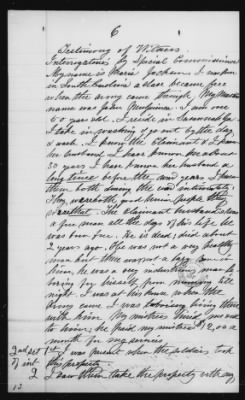 6
Testimony of Witness
Interrogatories by Special Commissioner
My name is Maria Jackson I was born
in South Carolina a slave became free
when the army came through. My Master
name was John I am over
50 years old. I reside in Savannah Ga.
I take in washing & go out by the day
& week. I know the Claimant & I knew
her husband I have known her about
30 years. I have known her husband a
long time before the war years I knew
them both during the war intimately.
They were both good Union people
The Claimant husband was
a free man all the days of his life. He
was born free. He is dead, died about
2 years ago. He was not a very healthy
man but there was not a lazy bone in
him, he was a very industrious man
for himself from morning till
night. I was at his house when the
army came. I was a living there
with him. My mistress hired me out
to him; he paid my mistress $10.00 a
month for my services.
2nd set 1st I was present when the soldiers took
of int this property.
2 I saw them take the property with my